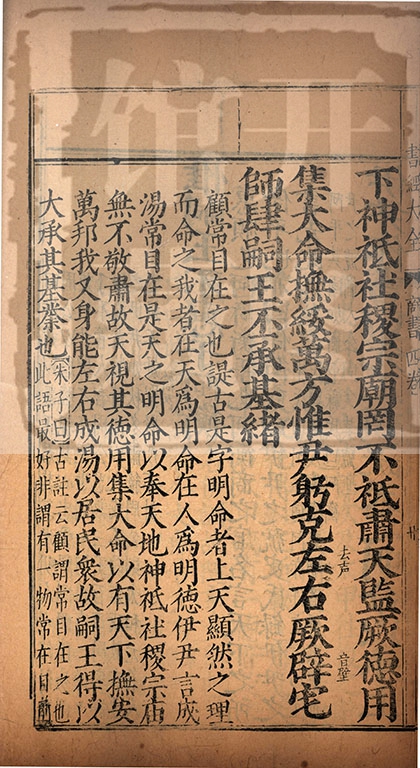 書經大全
商書四卷
下神祇社稷宗廟罔不祇肅天監厥德用
集大命撫綏萬方惟尹躬克左右厥辟宅
去声
音璧
師肆嗣王丕承基緒
顧常目在之也諟古是字明命者上天顯然之理
而命之我者在天爲明命在人爲明德伊尹言成
湯常目在是天之明命以奉天地神祇社稷宗庙
無不敬肅故天視其德用集大命以有天下撫安
萬邦我又身能左右成湯以居民衆故嗣王得以
大承其基業也
朱子曰古註云顧謂常目在之也
此語最好非謂有一物常在目前